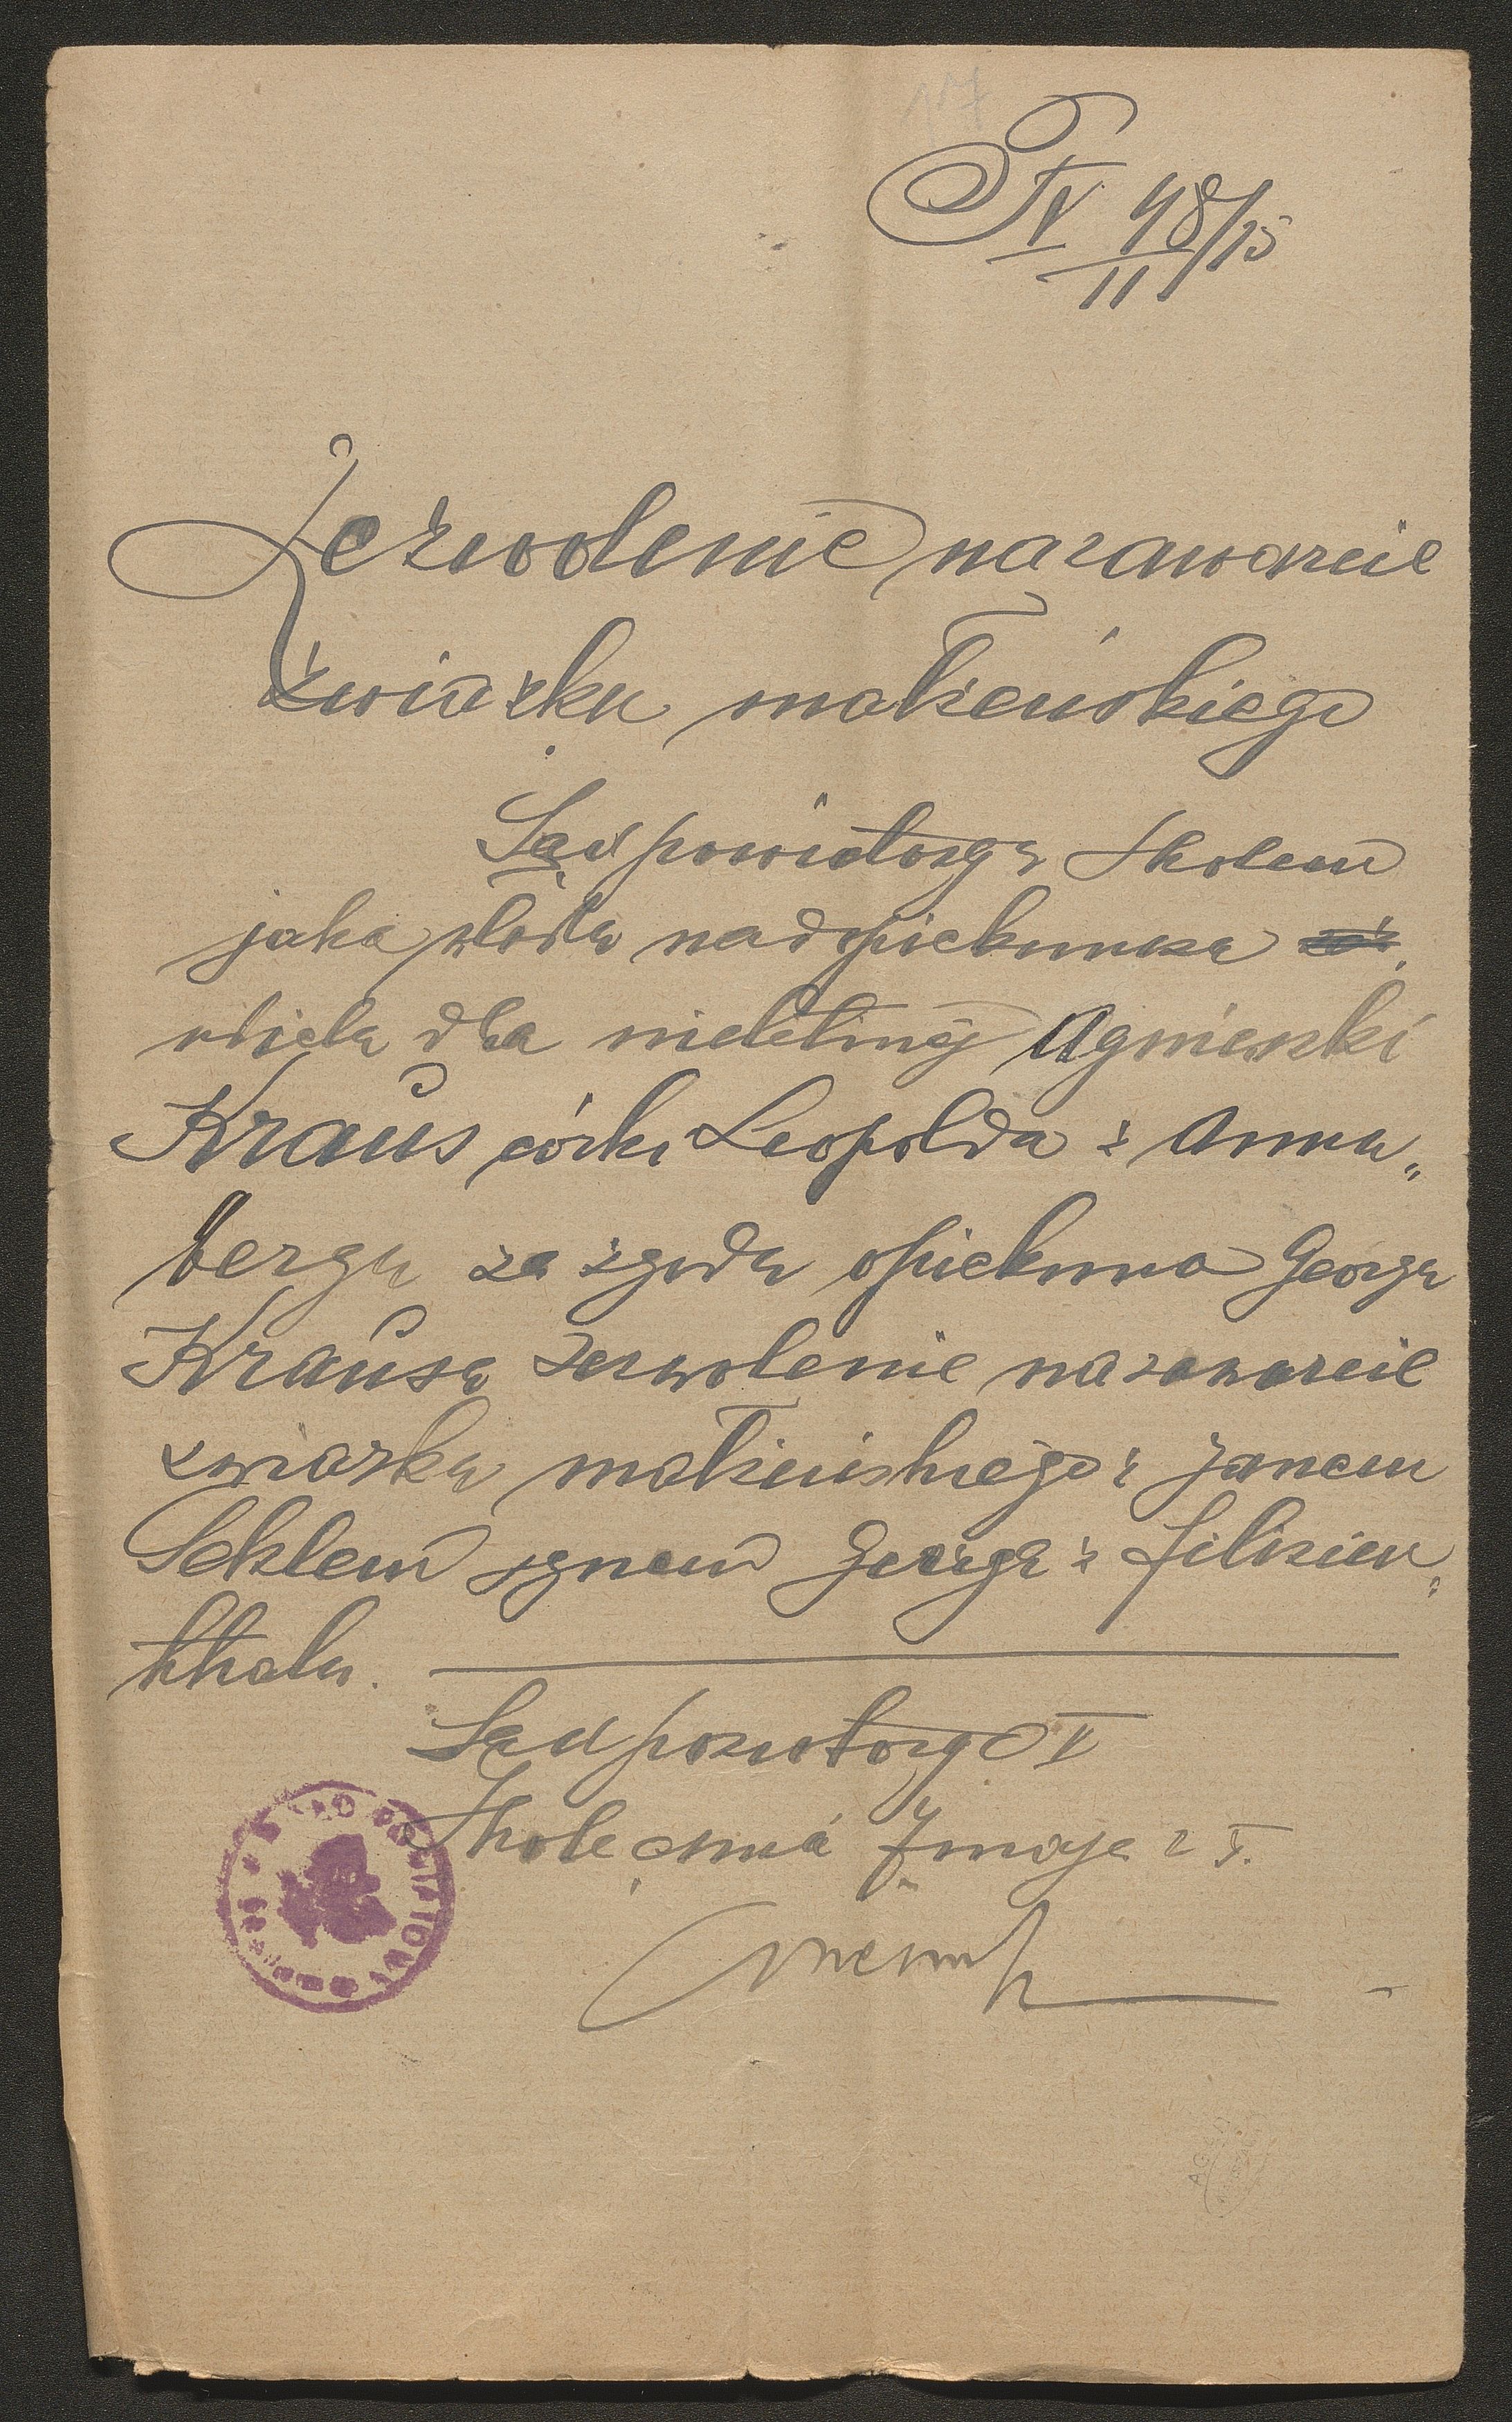 17
P IV 48/15
II
Zezwolenie na zawarcie
związku małżeńskiego
Sąd powiatowy w Skolem
jako władza nadopiekuńcza
udziela dla nieletniej Agnieszki
Kraus córki Leopolda z Anna„
bergu za zgodą opiekuna Georga
Krausa zezwolenie na zawarcie
związku małżeńskiego z Janem
Seklem synem Georga z Felizien„
thalu.
Sąd powiatowy O I
Skole dnia 7 maja 2 5.